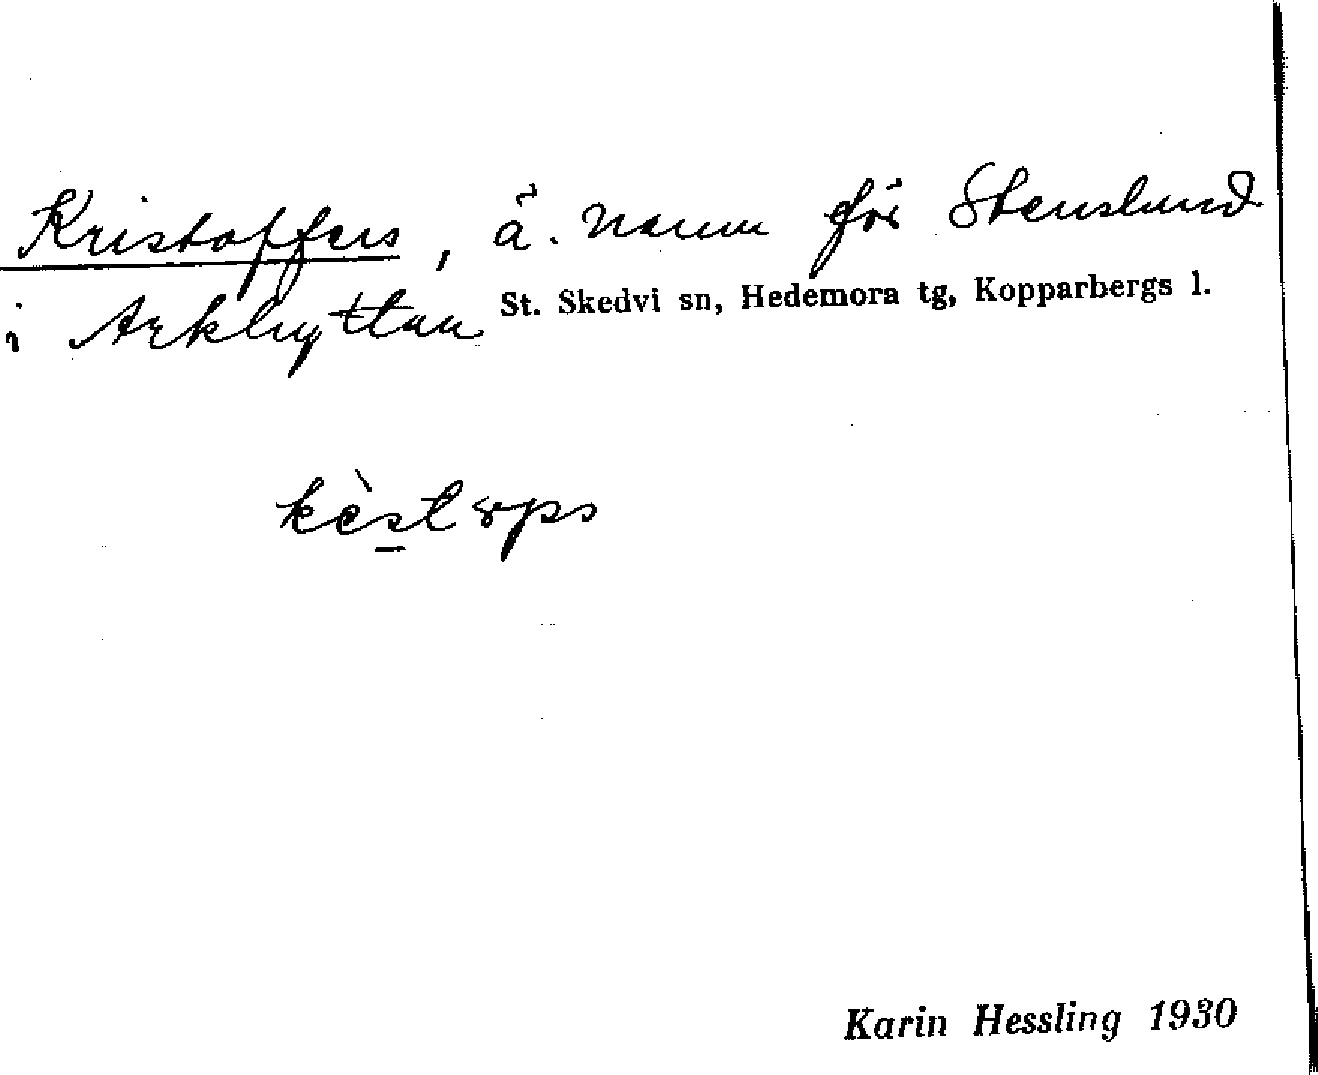 Kristoffers, ä. namn för Stenslund
i Arkhyttan St. Skedvi sn, Hedemora tg, Kopparbergs l.
Karin Hessling 1930